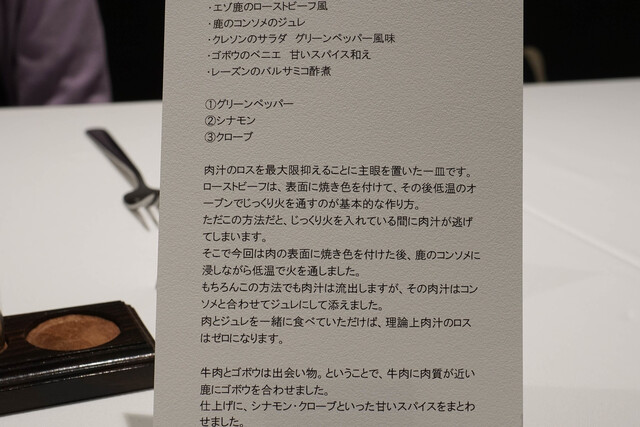 ・エゾ鹿のローストビーフ風
・鹿のコンソメのジュレ
・クレソンのサラダ　グリーンペッパー風味
・ゴボウのベニエ　甘いスパイス和え
・レーズンのバルサミコ酢煮
①グリーンペッパー
②シナモン
③クローブ
肉汁のロスを最大限抑えることに主眼を置いた一皿です。
ローストビーフは、表面に焼き色を付けて、その後低温のオ
ーブンでじっくり火を通すのが基本的な作り方。
ただこの方法だと、じっくり火を入れている間に肉汁が逃げ
てしまいます。
そこで今回は肉の表面に焼き色を付けた後、鹿のコンソメに
浸しながら低温で火を通しました。
もちろんこの方法でも肉汁は流出しますが、その肉汁はコン
ソメと合わせてジュレにして添えました。
肉とジュレを一緒に食べていただけば、理論上肉汁のロス
はゼロになります。
牛肉とゴボウは出会い物。ということで、牛肉に肉質が近い
鹿にゴボウを合わせました。
仕上げに、シナモン・クローブといった甘いスパイスをまとわ
せました。